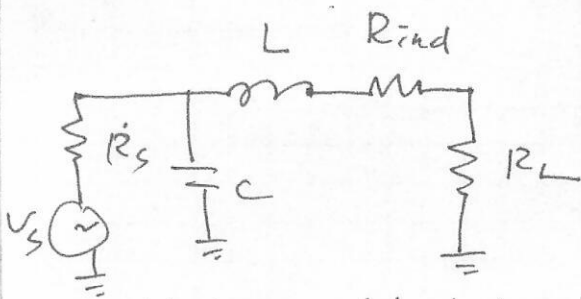 L Rind
Rs
C
RL
Vs